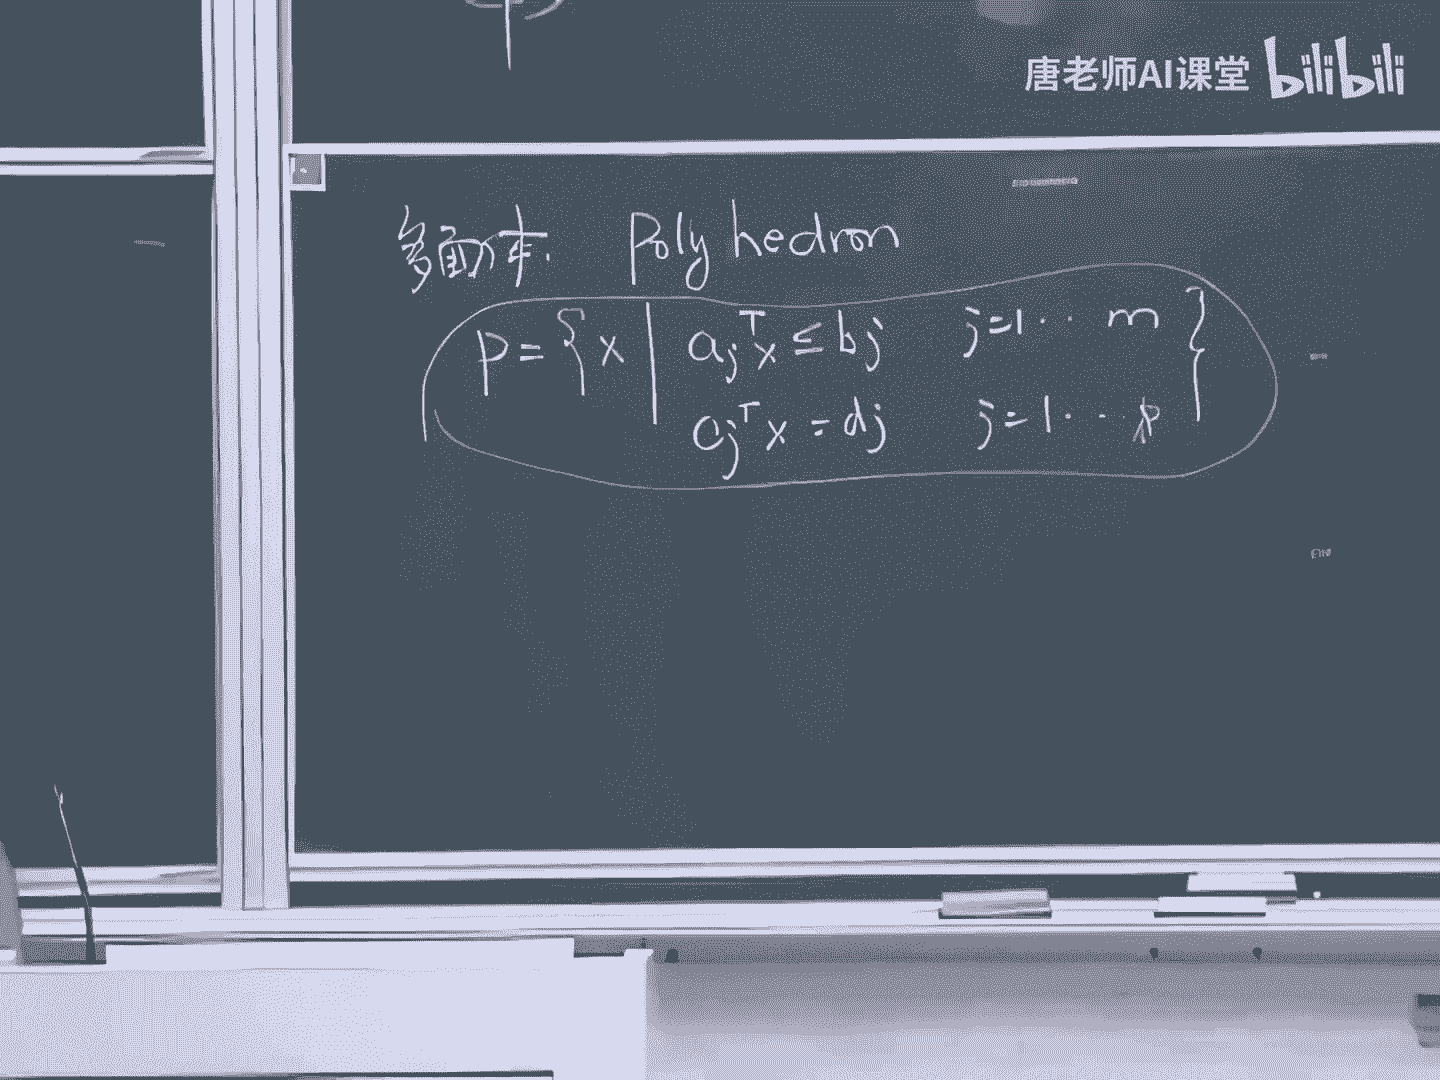 唐老师AI课堂 bilibili
多面体. Polyhedron
P = { x | a_j^T x ≤ b_j j=1·· m }
c_j^T x = d_j j=1··· p